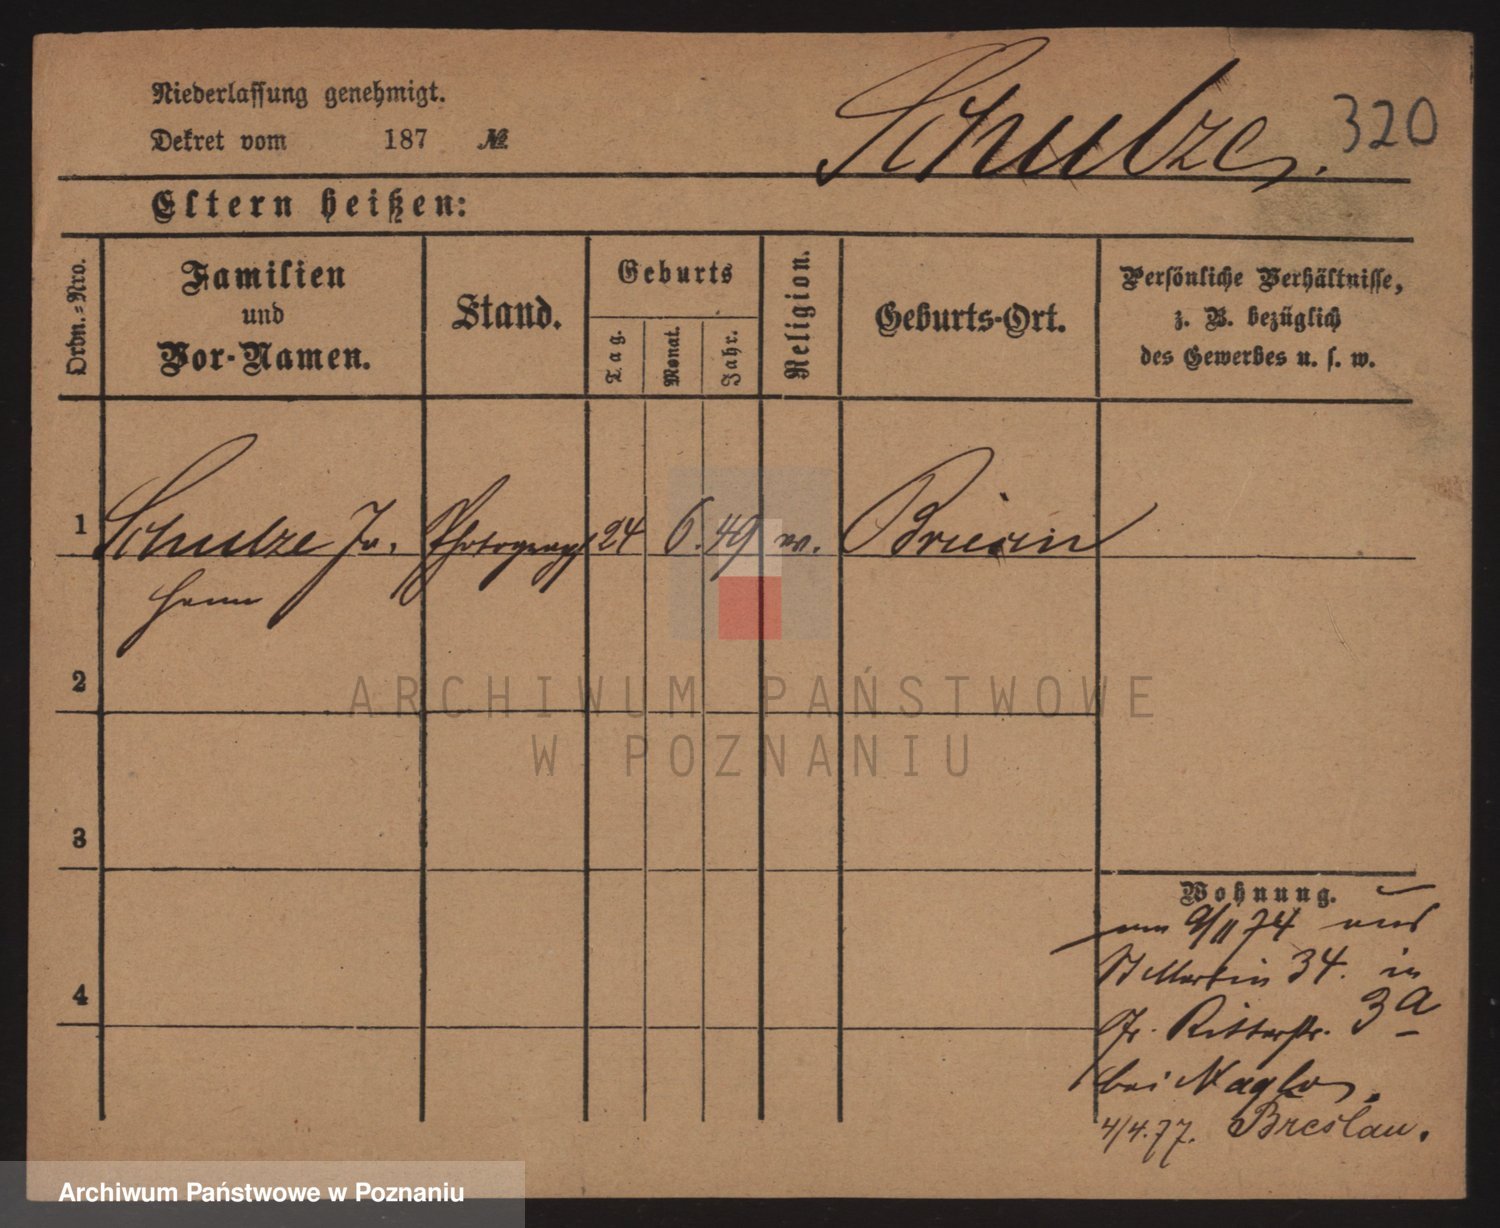 Niederlassung genehmigt.
Dekret vom 187 №
Schulze. 320
Eltern heißen:
Ordn.-Nro.
Familien
und
Vor-Namen.
Stand.
Geburts
Tag.
Monat.
Jahr.
Religion.
Geburts-Ort.
Persönliche Verhältnisse,
z. B. bezüglich
des Gewerbes u. s. w.
1 Schulze Jo. Photograph 24 6. 49 Briesen
hann
2
ARCHIWUM PAŃSTWOWE
W POZNANIU
3
Wohnung.
9/11 74 aus
St Martin 34. in
Gr. Ritterstr. 3a
4
bei
4/4.77. Breslau.
Archiwum Państwowe w Poznaniu